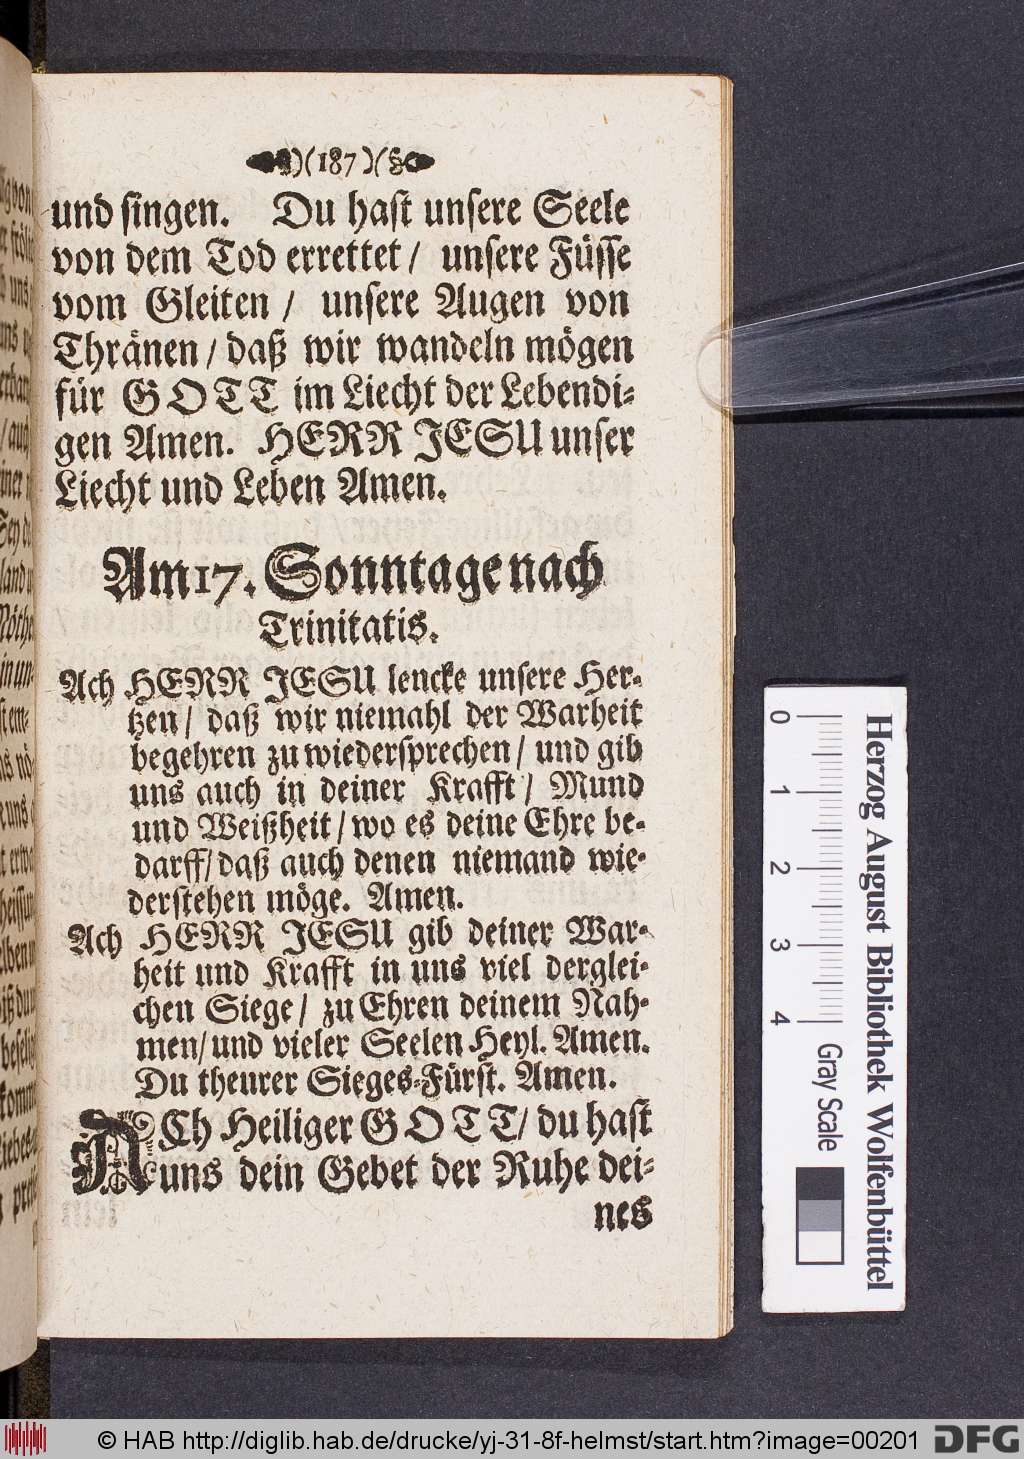 )(187)(
und singen. Du hast unsere Seele
von dem Tod errettet/ unsere Füsse
vom Gleiten/ unsere Augen von
Thränen/ daß wir wandeln mögen
für GOTT im Liecht der Lebendi-
gen Amen. HERR JESU unser
Liecht und Leben Amen.
Am 17. Sonntage nach
Trinitatis.
Ach HERR JESU lencke unsere Her-
tzen/ daß wir niemahl der Warheit
begehren zu wiedersprechen/ und gib
uns auch in deiner Krafft/ Mund
und Weißheit/ wo es deine Ehre be-
darff/ daß auch denen niemand wie-
derstehen möge. Amen.
Ach HERR JESU gib deiner War-
heit und Krafft in uns viel derglei-
chen Siege/ zu Ehren deinem Nah-
men/ und vieler Seelen Heyl. Amen.
Du theurer Sieges-Fürst. Amen.
ACh Heiliger GOTT/ du hast
uns dein Gebet der Ruhe dei-
nes
Herzog August Bibliothek Wolfenbüttel
0 1 2 3 4 Gray Scale
© HAB http://diglib.hab.de/drucke/yj-31-8f-helmst/start.htm?image=00201
DFG